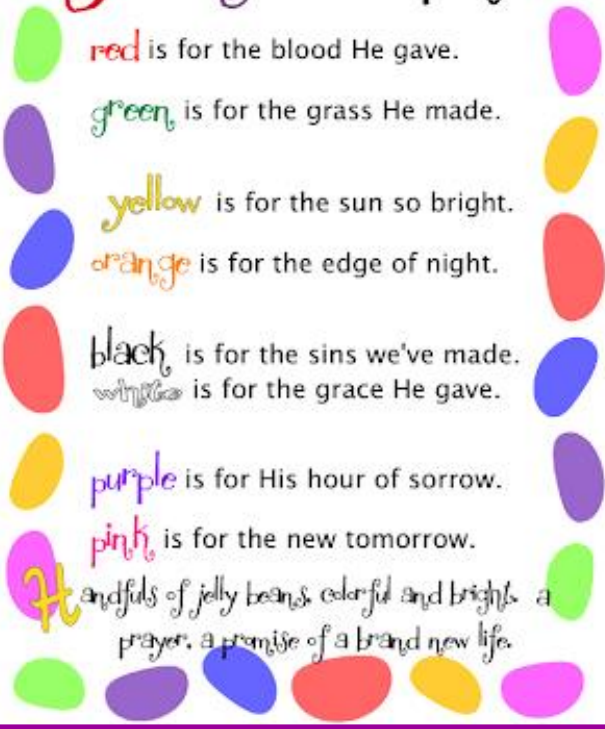 red is for the blood He gave.
green is for the grass He made.
yellow is for the sun so bright.
orange is for the edge of night.
black is for the sins we've made.
white is for the grace He gave.
purple is for His hour of sorrow.
pink is for the new tomorrow.
Handfuls of jelly beans, colorful and bright, a
prayer, a promise of a brand new life.